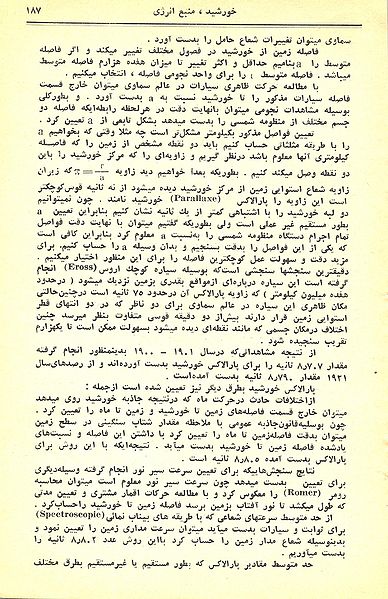 خورشید ، منبع انرژی
۱۸۷
سماوی میتوان تغییرات شعاع حامل را بدست آورد .
فاصله زمین از خورشید در فصول مختلف تغییر میکند و اگر فاصله
متوسط را a بنامیم حداقل و اکثر تغییر تا میزان هفده هزارم فاصله متوسط
میباشد . فاصله متوسط a را برای واحد نجومی فاصله ، انتخاب میکنیم .
با مطالعه حرکت ظاهری سیارات در عالم سماوی میتوان خارج قسمت
فاصله سیارات مذکور را تا خورشید نسبت به a بدست آورد . و بطورکلی
بوسیله مشاهدات نجومی میتوان بانهایت دقت در هرلحظه رابطه‌ایکه فاصله دو
جسم مختلف از منظومه شمسی را بدست میدهد بشکل تابعی از a تعیین کرد .
تعیین فواصل مذکور بکیلومتر مشکل‌تر است چه مثلا وقتی که بخواهیم a
را با طریقه مثلثاتی حساب کنیم باید دو نقطه مشخص از زمین را که فاصله
کیلومتری آنها معلوم باشد درنظر گیریم و زاویه‌ای را که مرکز خورشید را باین
دو نقطه وصل میکند کنیم . بطوریکه بعدا خواهیم دید زاویه π = r/a که زیران
زاویه شعاع استوایی زمین از مرکز خورشید دیده میشود از نه ثانیه قوس‌کوچکتر
است این زاویه را پارالاکس (Parallaxe) خورشید نامند . چون نمیتوانیم
دو لبه خورشید را با اشتباهی کمتر از یك ثانیه نشان کنیم بنابراین تعیین a
بطور مستقیم غیر عملی است ولی بطوریکه گفتیم میتوان با نهایت دقت فواصل
تمام اجرام دستگاه منظومه شمسی را به‌نسبت a معلوم کرد بنابراین کافی است
که یکی از این فواصل را بدقت بسنجیم و بدان وسیله a را حساب کنیم. برای
مزید دقت و سهولت عمل کوچکترین فاصله را برای این منظور اختیار میکنیم .
دقیقترین سنجشها سنجشی است‌که بوسیله سیاره کوچك اروس (Eross) انجام
گرفته است این سیاره درپاره‌ای ازمواقع بقدری بزمین نزدیك میشود ( درحدود
هفده میلیون کیلومتر ) که زاویه پارالاکس آن درحدود ۷۵ ثانیه است درچنین‌حالتی
مکان ظاهری این سیاره در عالم سماوی برای دو ناظر که در دو انتهای قطر
استوایی زمین قرار دارند بیش‌از دو دقیقه قوسی متفاوت بنظر میرسد چنین
اختلاف درمکان جسمی که مانند نقطه‌ای دیده میشود بسهولت ممکن است تا یکهزارم
تقریب سنجیده شود .
از نتیجه مشاهداتی‌که درسال ۱۹۰۱ - ۱۹۰۰ بدینمنظور انجام گرفته
مقدار ۸٫۸۰۷ ثانیه را برای پارالاکس خورشید بدست آورده‌اند و از رصدهای‌سال
۱۹۲۱ مقدار ۸٫۷۹۰ ثانیه بدست آمده‌است .
پارالاکس خورشید بطرق دیگر نیز تعیین شده است ازجمله :
ازاختلافات حادث درحرکت ماه که درنتیجه جاذبه خورشید روی میدهد
میتوان خارج قسمت فاصله‌های زمین تا خورشید و زمین تا ماه را تعیین کرد .
چون بوسیله‌قانون‌جاذبه عمومی با ملاحظه مقدار شتاب سنگینی در سطح زمین
میتوان بدقت فاصله‌زمین تا ماه را تعیین کرد با داشتن این فاصله و نسبت‌های
یادشده فاصله زمین تا خورشید بدست میآید . نتیجه‌ایکه با این روش برای
پارالاکس بدست آمده ۸٫۸۰۵ ثانیه است .
نتایج سنجش‌هاییکه برای تعیین سرعت سیر نور انجام گرفته وسیله‌دیگری
برای تعیین بدست میدهد چون سرعت سیر نور معلوم است میتوان محاسبه
رومر (Romer) را معکوس کرد و با مطالعه حرکات اقمار مشتری و تعیین مدتی
که طول میکشد تا نور آفتاب بزمین برسد فاصله زمین تا خورشید راحساب‌کرد .
از حد متوسط سرعتهای شعاعی که با طریقه های بیناب نمائی (Spectroscopie)
برای توابت و سیارات بدست میآید میتوان سرعت مداری زمین را تعیین نمود و
بدینوسیله شعاع مدار زمین را حساب کرد بااین روش عدد ۸٫۸۰۲ ثانیه را
بدست میآوریم .
حد متوسط مقادیر پارالاکس که بطور مستقیم یا غیرمستقیم بطرق مختلف